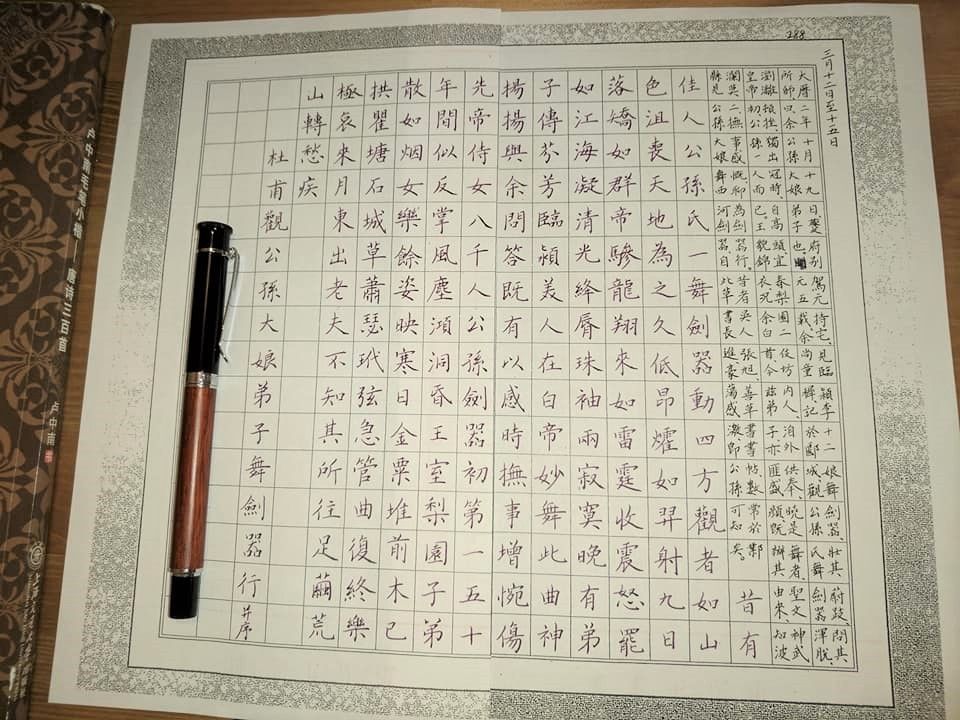 288
三月十二日至十五日
大曆二年十月十九日夔府别駕元持宅見臨潁李十二娘舞劍器壯其蔚跂問其
所師曰余公孫大娘弟子也元五載余尚童穉記於郾城觀公孫氏舞劍器渾脫
瀏灕頓挫獨出冠時自高頭宜春梨園二伎坊内人洎外供奉曉是舞者聖文神武
皇帝初公孫一人而已玉貌錦衣況余白首今兹弟子亦匪盛顏既辨其由來知波
瀾莫二撫事感慨聊為劍器行昔者吳人張旭善草書書帖數常於鄴
縣見公孫大娘舞西河劍器自此草書長進豪蕩感激即公孫可知矣
昔有
佳人公孫氏一舞劍器動四方觀者如山
色沮喪天地為之久低昂㸌如羿射九日
落矯如群帝驂龍翔來如雷霆收震怒罷
如江海凝清光絳脣珠袖兩寂寞晚有弟
子傳芬芳臨潁美人在白帝妙舞此曲神
揚揚與余問答既有以感時撫事增惋傷
先帝侍女八千人公孫劍器初第一五十
年間似反掌風塵澒洞昏王室梨園子弟
散如烟女樂餘姿映寒日金粟堆前木已
拱瞿塘石城草蕭瑟玳弦急管曲復終樂
極哀來月東出老夫不知其所往足繭荒
山轉愁疾
杜甫觀公孫大娘弟子舞劍器行并序
卢中南毛笔小楷——唐诗三百首
卢中南